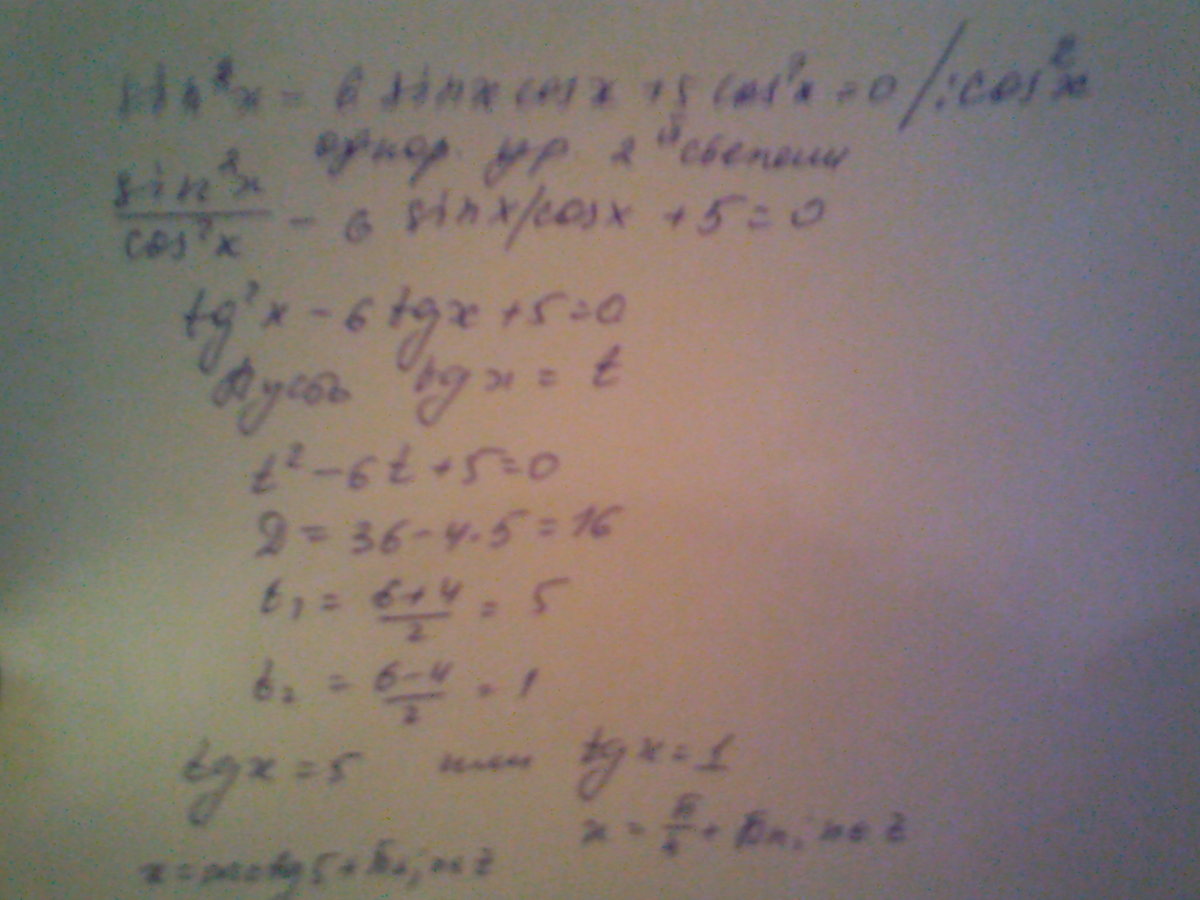 sin²x - 6 sinx cosx + 5 cos²x = 0 /: cos²x
однор. ур. 2ой степени
sin²x/cos²x - 6 sinx/cosx + 5 = 0
tg²x - 6 tgx + 5 = 0
Пусть tgx = t
t² - 6t + 5 = 0
D = 36 - 4·5 = 16
t₁ = (6+4)/2 = 5
t₂ = (6-4)/2 = 1
tgx = 5 или tgx = 1
x = π/4 + πn, n∈Z
x = arctg5 + πn, n∈Z